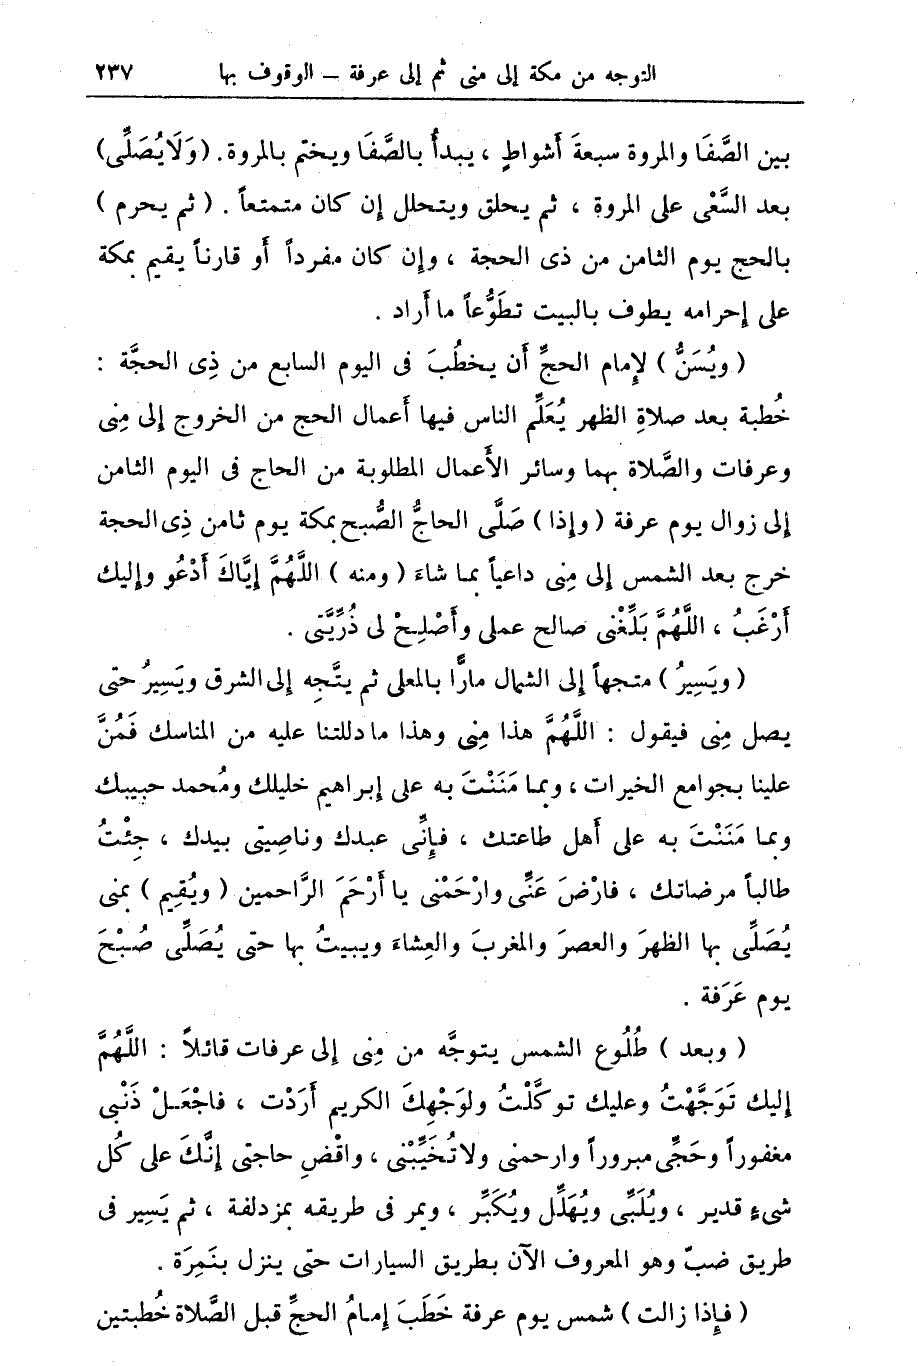 التوجه من مكة إلى منى ثم إلى عرفة – الوقوف بها ٢٣٧
بين الصَّفَا والمروة سبعةَ أَشواطٍ ، يبدأُ بالصَّفَا ويختم بالمروة. (وَلَايُصَلِّى)
بعد السَّعْى على المروة ، ثم يحلق ويتحلل إن كان متمتعاً . ( ثم يحرم )
بالحج يوم الثامن من ذى الحجة ، وإن كان مفرداً أو قارناً يقيم بمكة
على إحرامه يطوف بالبيت تطَوُّعاً ما أَراد .
( ويُسَنُّ ) لإمام الحجِّ أَن يخطُبَ فى اليوم السابع من ذِى الحجَّة :
خُطبة بعد صلاةِ الظهر يُعَلِّم الناس فيها أَعمال الحج من الخروج إلى مِنى
وعرفات والصَّلاة بهما وسائر الأَعمال المطلوبة من الحاج فى اليوم الثامن
إلى زوال يوم عرفة ( وإذا ) صَلَّى الحاجُّ الصُّبح بمكة يوم ثامن ذِى الحجة
خرج بعد الشمس إلى مِنى داعياً بما شاءَ ( ومنه ) اللَّهُمَّ إيَّاكَ أَدْعُو وإليك
أَرْغَبُ ، اللَّهُمَّ بَلِّغْنى صالح عملى وأَصْلِحْ لى ذُرِّيَّتى .
( ويَسِيرُ ) متجهاً إلى الشمال مارًّا بالمعلى ثم يتَّجِه إلى الشرق ويَسِيرُ حتى
يصل مِنى فيقول : اللَّهُمَّ هذا مِنى وهذا ما دللتنا عليه من المناسك فَمُنَّ
علينا بجوامع الخيرات ، وبما مَنَنْتَ به على إبراهيم خليلك ومُحمد حبيبك
وبما مَنَنْتَ به على أَهل طاعتك ، فإِنِّى عبدك وناصِيتى بيدك ، جِئْتُ
طالباً مرضاتك ، فارْضَ عَنِّى وارْحَمْنى يا أَرْحَمَ الرَّاحمين ( ويُقِيم ) بمنى
يُصَلِّى بها الظهرَ والعصرَ والمغربَ والعِشاءَ ويبيتُ بها حتى يُصَلِّى صُبْحَ
يوم عَرَفة .
( وبعد ) طُلُوع الشمس يتوجَّه من مِنى إلى عرفات قائلاً : اللَّهُمَّ
إليك تَوَجَّهْتُ وعليك توكَّلْتُ ولوَجْهِكَ الكريم أَرَدْت ، فاجْعَـلْ ذَنْبى
مغفوراً وحَجِّى مبروراً وارحمنى ولاتُخَيِّبْنى ، واقْضِ حاجتى إنَّكَ على كُل
شىءٍ قدير ، ويُلَبِّى ويُهَلِّل ويُكَبِّر ، ويمر فى طريقه بمزدلفة ، ثم يَسِير فى
طريق ضبّ وهو المعروف الآن بطريق السيارات حتى ينزل بنَمِرَة .
( فإِذا زالت ) شمس يوم عرفة خَطَبَ إمامُ الحجِّ قبل الصَّلاة خُطبتين